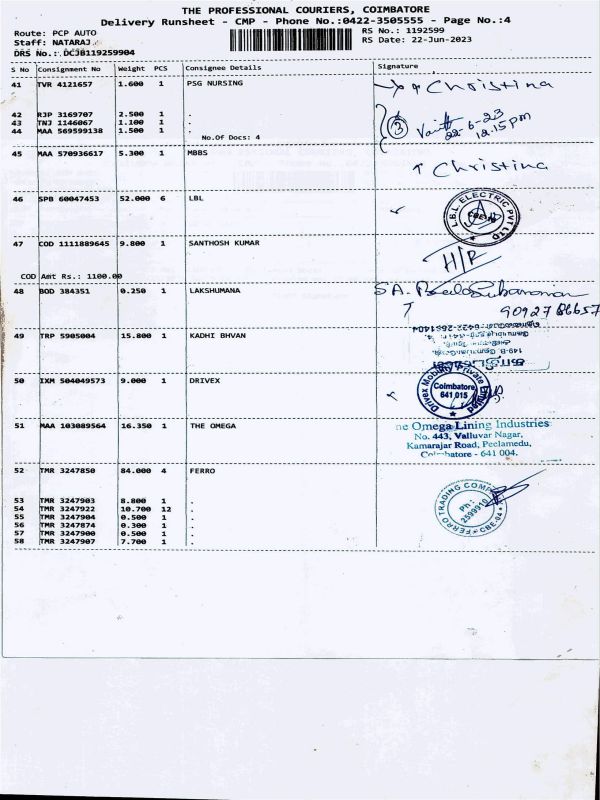 THE PROFESSIONAL COURIERS, COIMBATORE
Delivery Runsheet - CMP - Phone No.:0422-3505555 - Page No.:4
Route: PCP AUTO RS No.: 1192599
Staff: NATARAJ. RS Date: 22-Jun-2023
DRS No.: DCJB119259904
S No Consignment No Weight PCS Consignee Details Signature
41 TVR 4121657 1.600 1 PSG NURSING Christina
42 RJP 3169707 2.500 1 .
43 TNJ 1146067 1.100 1 . 3
44 MAA 569599138 1.500 1 . 22-6-23
No.Of Docs: 4 12.15pm
45 MAA 570936617 5.300 1 MBBS Christina
46 SPB 60047453 52.000 6 LBL L.B.L. ELECTRIC PVT LTD CBE
47 COD 1111889645 9.800 1 SANTHOSH KUMAR H/R
COD Amt Rs.: 1100.00
48 BOD 384351 0.250 1 LAKSHUMANA S A.
49 TRP 5905004 15.800 1 KADHI BHVAN
50 IXM 504049573 9.000 1 DRIVEX Drivex Mobility Private Limited Coimbatore 641 015
51 MAA 103089564 16.350 1 THE OMEGA ne Omega Lining Industries
No. 443, Valluvar Nagar,
Kamarajar Road, Peelamedu,
Coimbatore - 641 004.
52 TMR 3247850 84.000 4 FERRO
53 TMR 3247903 8.800 1 . FERRO TRADING COMP
54 TMR 3247922 10.700 12 . Ph : 2599910
55 TMR 3247904 0.500 1 . CBE-04
56 TMR 3247874 0.300 1 .
57 TMR 3247900 0.500 1 .
58 TMR 3247907 7.700 1 .